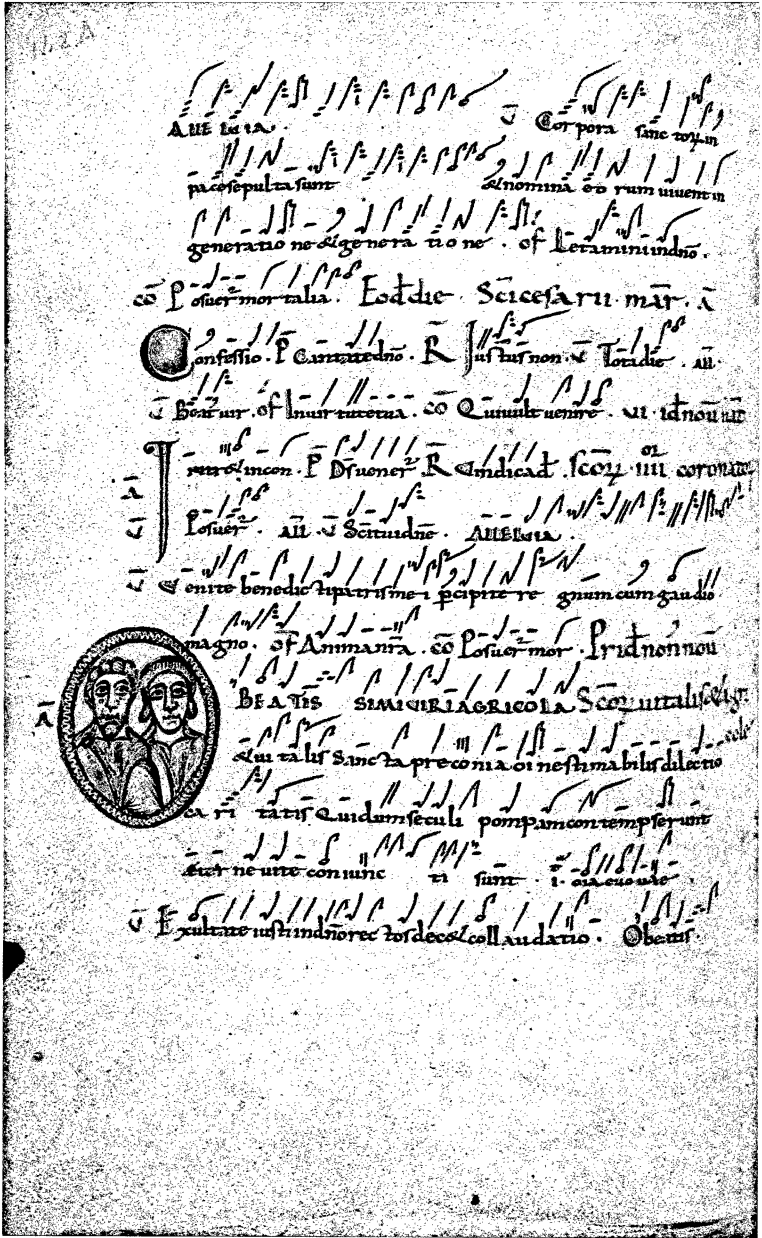 Alle luia. V̄ Corpora sanc toꝝ in
pace sepulta sunt & nomina eo rum uiuent in
generatio ne & genera tio ne. of Letamini in dn̄o.
cō Posuer̄ mortalia. Eod̄ die Sc̄i cesarii mar̄. ā
Confessio. P̄ Cantate dn̄o. R̄ Iustus non. V̄ Tota die. all
V̄ Beat uir. of In uirtute tua. cō Qui uult uenire. VI. id nou̅
In con. P̄ Ds̄ uener̄. R̄ Uindica d̄. sc̄oꝝ. IIII or coronatoꝝ
ā
V̄ Posuer̄. all. V̄ Sc̄i tui dn̄e. Alleluia.
V̄ Uenite benedic ti patris mei p̄cipite re gnum cum gaudio
magno. of Anima nr̄a. cō Posuer̄ mor. Prid̄ non nou̅
ā BEATIS SIMI UIRI AGRICOLA Sc̄oꝝ uitalis & agri
cole
& ui talis Sancta preconia o inestimabilis dilectio
ca ri tatis Qui dum seculi pompam contempserunt
eter ne uite coniunc ti sunt. i. oia euouae
V̄ Exultate iusti in dn̄o rec tos dec& collaudatio. O beatis